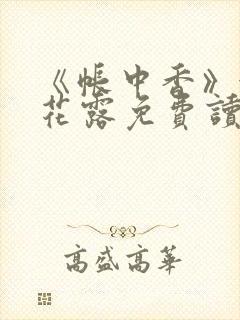 《帳中香》
花露免費讀
高盛高華